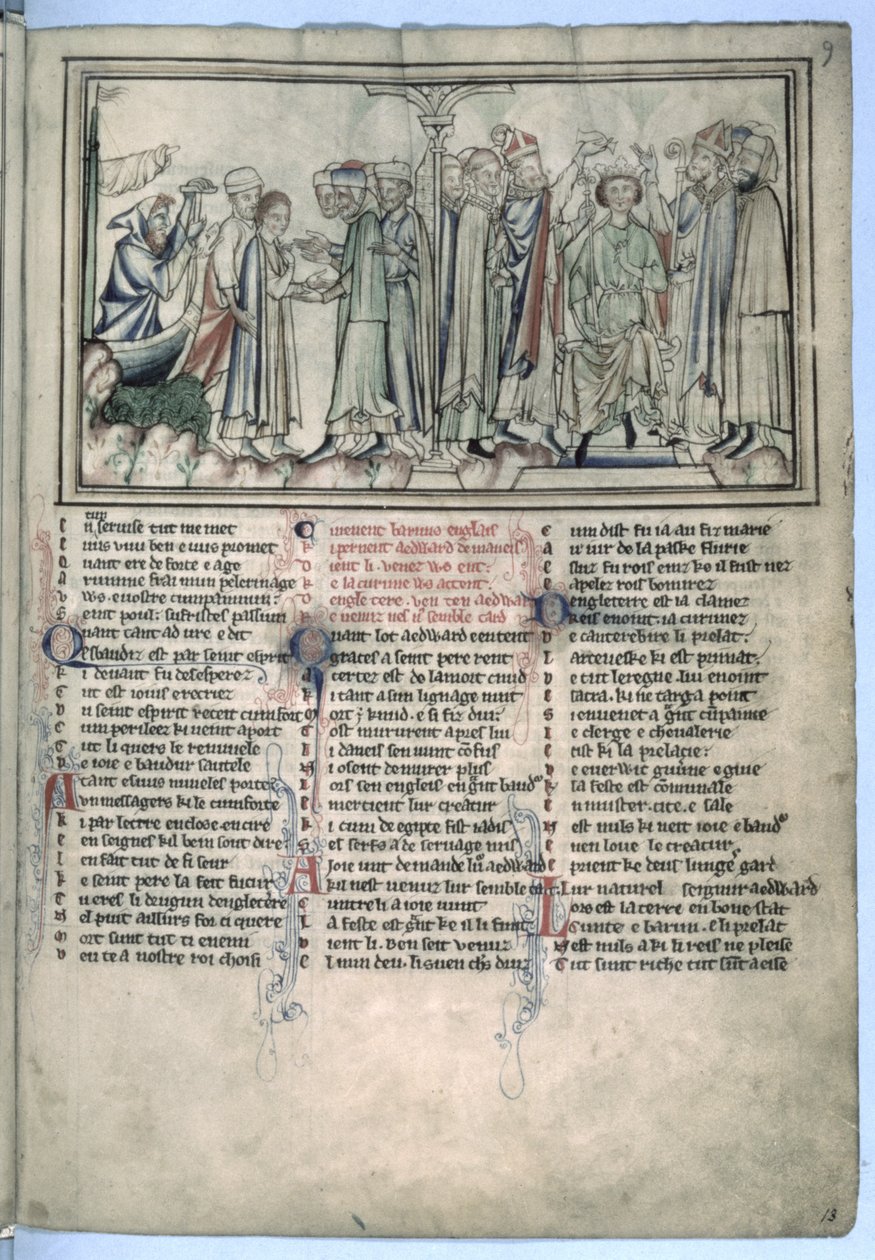 9
tur
En seruise tut me met
E uus vuu ben e uus promet
Quant ere de force e age
A rumme frai mun pelerinage
V us e uostre cumpainnun:
Seint poul: sufristes passiun
Quant ad ure e dit
Esbaudiz est par seint esprit
K i deuant fu desesperez
Tut est iouis e rectez
Du seint espirit receit cumfort
Cum perilez ki ueint a port
Tut li quers le renuuele
De ioie e baudur sautele
Atant es uus nuueles porte
Vn messagers ki le cumforte
Ki par lettre enclose en cire
E enseignes kil bein sout dire
Len fait tut de fi seur
Ke seint pere la feit futur
Tu eres li dengun dengletere
Nel puit aillurs for ci quere
Mort sunt tut ti enemi
Veu te a nostre roi choisi
Ci ueuent baruns engleis
Ki pernent Aedward de maneis
Dient li. venez uus ent:
Ke la curune uus attent:
D engletere. ven ten aedward
Ke uenir nes un semble tard
Quant lot aedward e entent
Grates a seint pere rent
Acertez est de la mort cnud
Ki tant a sun lignage nuit
Mort est knud. e si fiz dui:
Tost mururent apres lui
Li daneis sen uunt confus
Ni osent demurer plus
Lors sen engleis en grant baudur
E mercient lur creatur
Ki cum de egipte fist iadis
Ses serfs a de seruage mis
A ioie unt demande lur aedward
Kil nest uenuz lur semble tart
Cuntre li a ioie uunt
La feste est grant ke il li funt
Dient li. Ben seit uenuz
El nun deu. li suen chers druz
Cum dist fu ia au fiz marie
Au iur de la paske flurie
Seiur fu rois einz ke il fust nez
E apelez rois bonurez
Dengleterre est ia clamez
Reis enoint. ia curunez
De canterebire li prelat:
L arceueske ki est primat:
De tut le regne. lui enoint
E sacra. ki ne targa point
Si en uenet a grant cumpainie
E clerge e cheualerie
Cist ki la prelacie:
De euerwic guuerne e giue
La feste est communale
En muster. cite. e sale
Nest nuls ki neit ioie e baudur
E nen loue le creatur
E prient ke deus lunges gard
Lur naturel seignur aedward
Lors est la terre en bone estat
Cunte e barun. e li prelat
Nest nuls a ki li reis ne pleise
Tut sunt riche tut sunt a eise
13